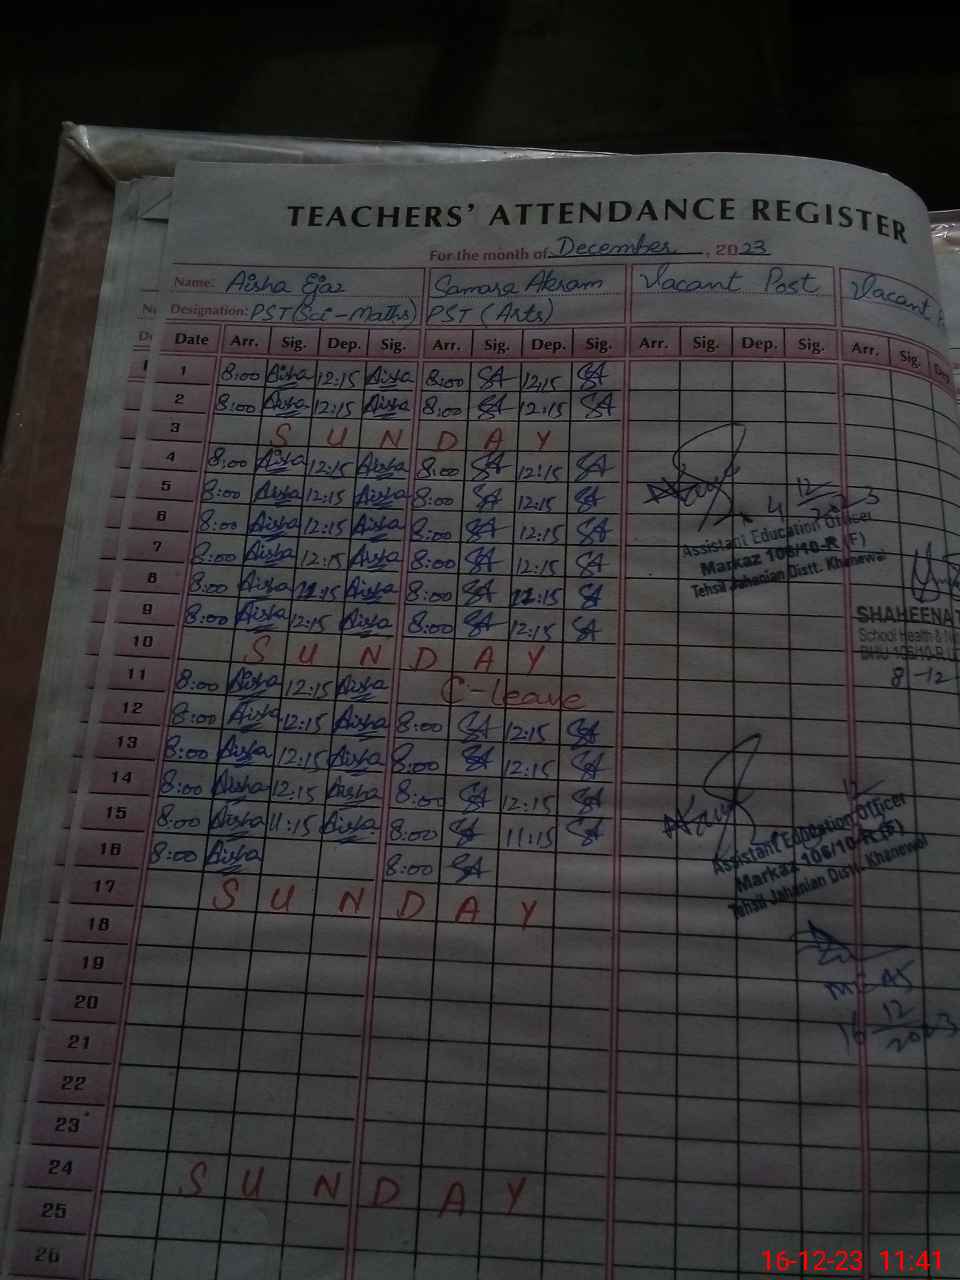 TEACHERS' ATTENDANCE REGISTER
For the month of December, 2023
Name: Aisha Ejaz Samara Akram Vacant Post Vacant
Designation: PST (Sci-Maths) PST (Arts)
Date Arr. Sig. Dep. Sig. Arr. Sig. Dep. Sig. Arr. Sig. Dep. Sig. Arr. Sig. Dep.
1 8:00 Aisha 12:15 Aisha 8:00 SA 12:15 SA
2 8:00 Aisha 12:15 Aisha 8:00 SA 12:15 SA
3 SUNDAY
4 8:00 Aisha 12:15 Aisha 8:00 SA 12:15 SA
5 8:00 Aisha 12:15 Aisha 8:00 SA 12:15 SA
6 8:00 Aisha 12:15 Aisha 8:00 SA 12:15 SA
7 8:00 Aisha 12:15 Aisha 8:00 SA 12:15 SA
8 8:00 Aisha 12:15 Aisha 8:00 SA 12:15 SA
9 8:00 Aisha 12:15 Aisha 8:00 SA 12:15 SA
10 SUNDAY
11 8:00 Aisha 12:15 Aisha C-leave
12 8:00 Aisha 12:15 Aisha 8:00 SA 12:15 SA
13 8:00 Aisha 12:15 Aisha 8:00 SA 12:15 SA
14 8:00 Aisha 12:15 Aisha 8:00 SA 12:15 SA
15 8:00 Aisha 11:15 Aisha 8:00 SA 11:15 SA
16 8:00 Aisha 8:00 SA
17 SUNDAY
18
19
20
21
22
23
24 SUNDAY
25
26
4 12 2023
Assistant Education Officer
Markaz 106/10-R (F)
Tehsil Jahanian Distt. Khanewal
SHAHEENA
School Health &
BHU 106/10-R
8-12
12
Assistant Education Officer
Markaz 106/10-R (F)
Tehsil Jahanian Distt. Khanewal
16 12 2023
16-12-23 11:41